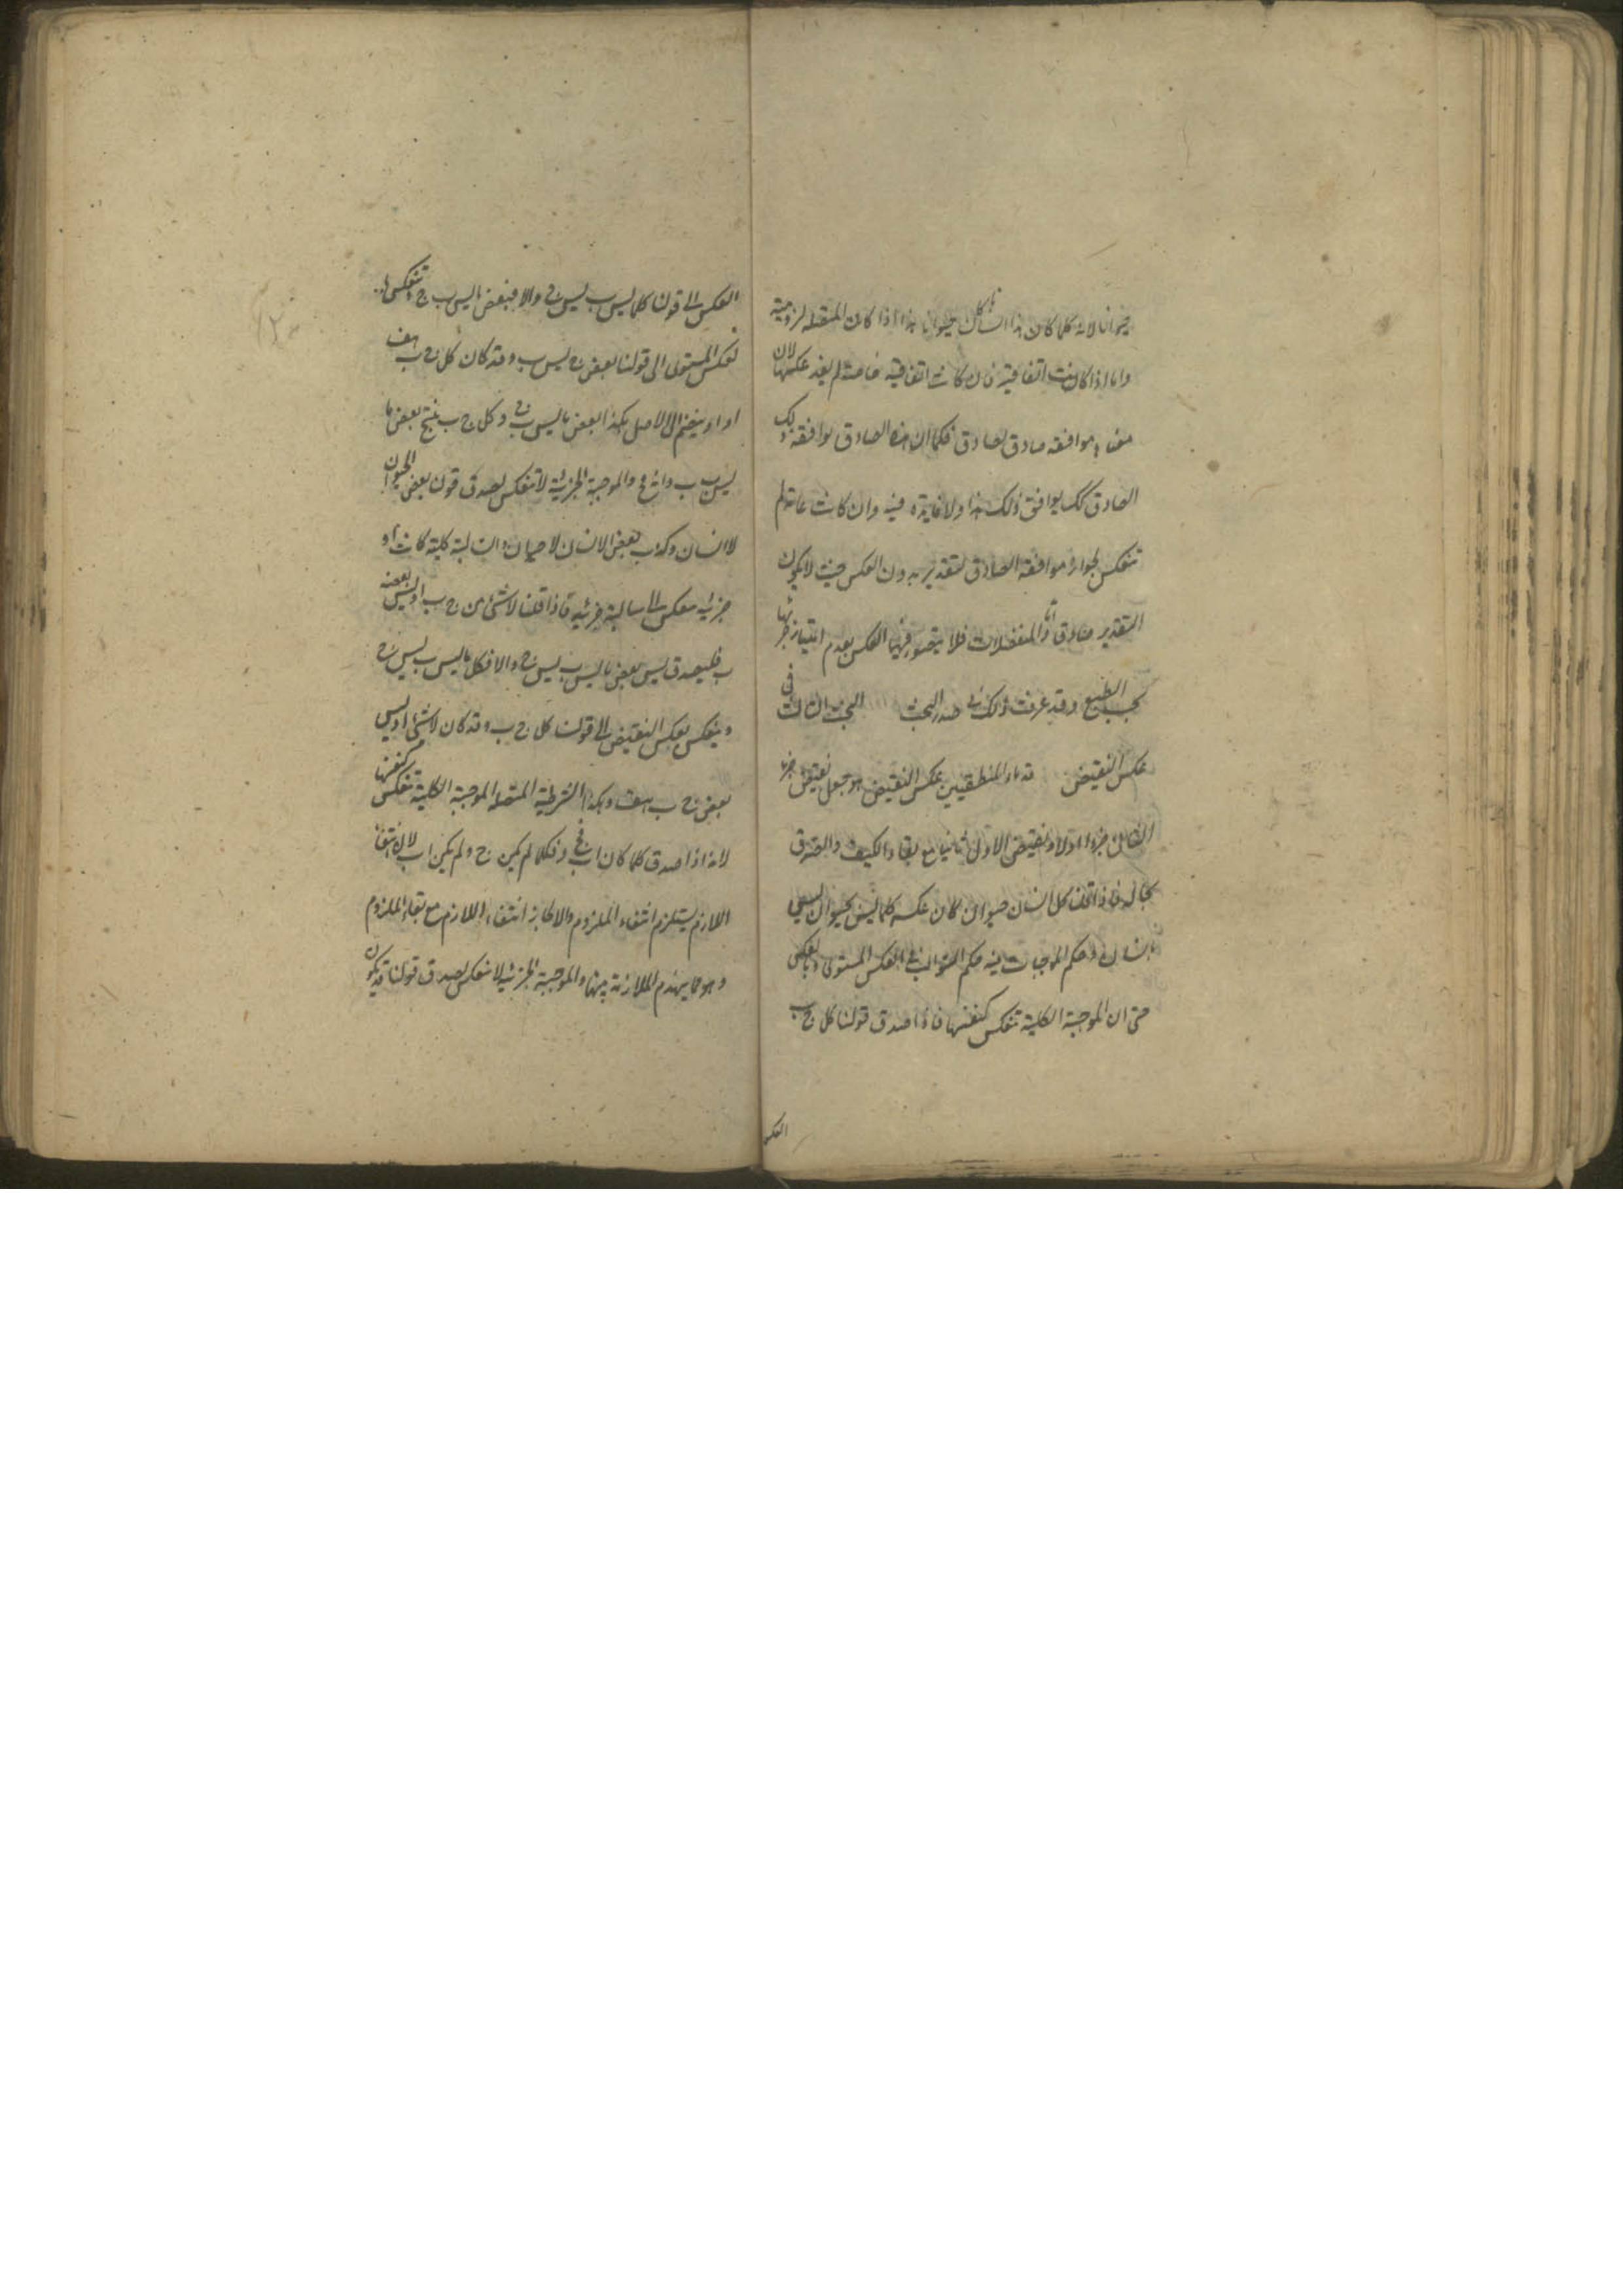 حيوانا لانه كلما كان هذا انسانا كان حيوانا هذا اذا كان المتصله لزومية
واما اذا كانت اتفاقية فان كانت اتفاقيه خاصة لم يفد عكسها لان
معناه موافقه صادق لصادق فكما ان هذا الصادق يوافقه ذلك
الصادق كك يوافق ذلك هذا ولا فايدة فيه وان كانت عامة لم
تنعكس لجواز موافقة الصادق لتقدير بدون العكس حيث لا يكون
التقدير صادقا واما المنفصلات فلا يتصور فيها العكس لعدم امتياز جزئيها
بحسب الطبع وقد عرفت ذلك في صدر البحث البحث الثالث في
عكس النقيض قدماء المنطقيين عكس النقيض هو جعل نقيض الجزء
الثاني جزءا اولا ونقيض الاول ثانيا مع بقاء الكيف والصدق
بحاله فاذا قلنا كل انسان حيوان كان عكسه كلما ليس بحيوان ليس
بانسان وحكم الموجبات فيه حكم السوالب في العكس المستوى وبالعكس
حتى ان الموجبة الكلية تنعكس كنفسها فاذا صدق قولنا كل ج ب
العكس
العكس الى قولنا كلما ليس ب ليس ج والا فبعض ما ليس ب ج وتنعكس
بعكس المستوى الى قولنا بعض ج ليس ب وقد كان كل ج ب هف
او ينضم الى الاصل هكذا بعض ما ليس ب ج وكل ج ب ينتج بعض ما
ليس ب ب وانه مح والموجبة الجزئية لا تنعكس لصدق قولنا بعض الحيوان
لا انسان وكذب بعض الانسان لا حيوان والسالبة كلية كانت او
جزئية تنعكس الى سالبة جزئيه فاذا قلنا لا شئ من ج ب او ليس بعضه
ب فليصدق ليس بعض ما ليس ب ليس ج والا فكل ما ليس ب ليس ج
وينعكس بعكس النقيض الى قولنا كل ج ب وقد كان لا شئ او ليس
بعض ج ب هف وهكذا الشرطية المتصله الموجبة الكلية تنعكس كنفسها
لانه اذا صدق كلما كان اب فج د فكلما لم يكن ج د لم يكن اب لان انتفاء
اللازم يستلزم انتفاء الملزوم والا لجاز انتفاء اللازم مع بقاء الملزوم
وهو مما يهدم الملازمة بينهما والموجبة الجزئية لا تنعكس لصدق قولنا قد يكون